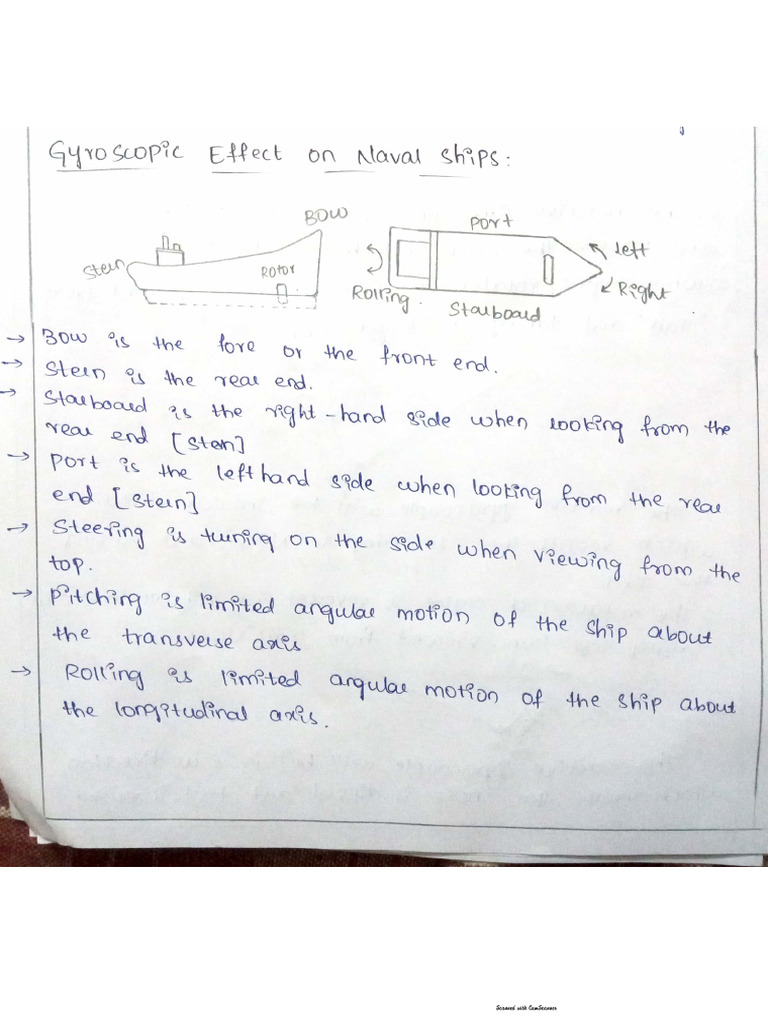 Gyroscopic Effect on Naval Ships:
BOW
Port
Stern
Rotor
Left
Rolling.
Right
Starboard
→ Bow is the fore or the front end.
→ Stern is the rear end.
→ Starboard is the right-hand side when looking from the
rear end [Stern]
→ Port is the left hand side when looking from the rear
end [Stern]
→ Steering is turning on the side when viewing from the
top.
→ Pitching is limited angular motion of the ship about
the transverse axis
→ Rolling is limited angular motion of the ship about
the longitudinal axis.
Scanned with CamScanner